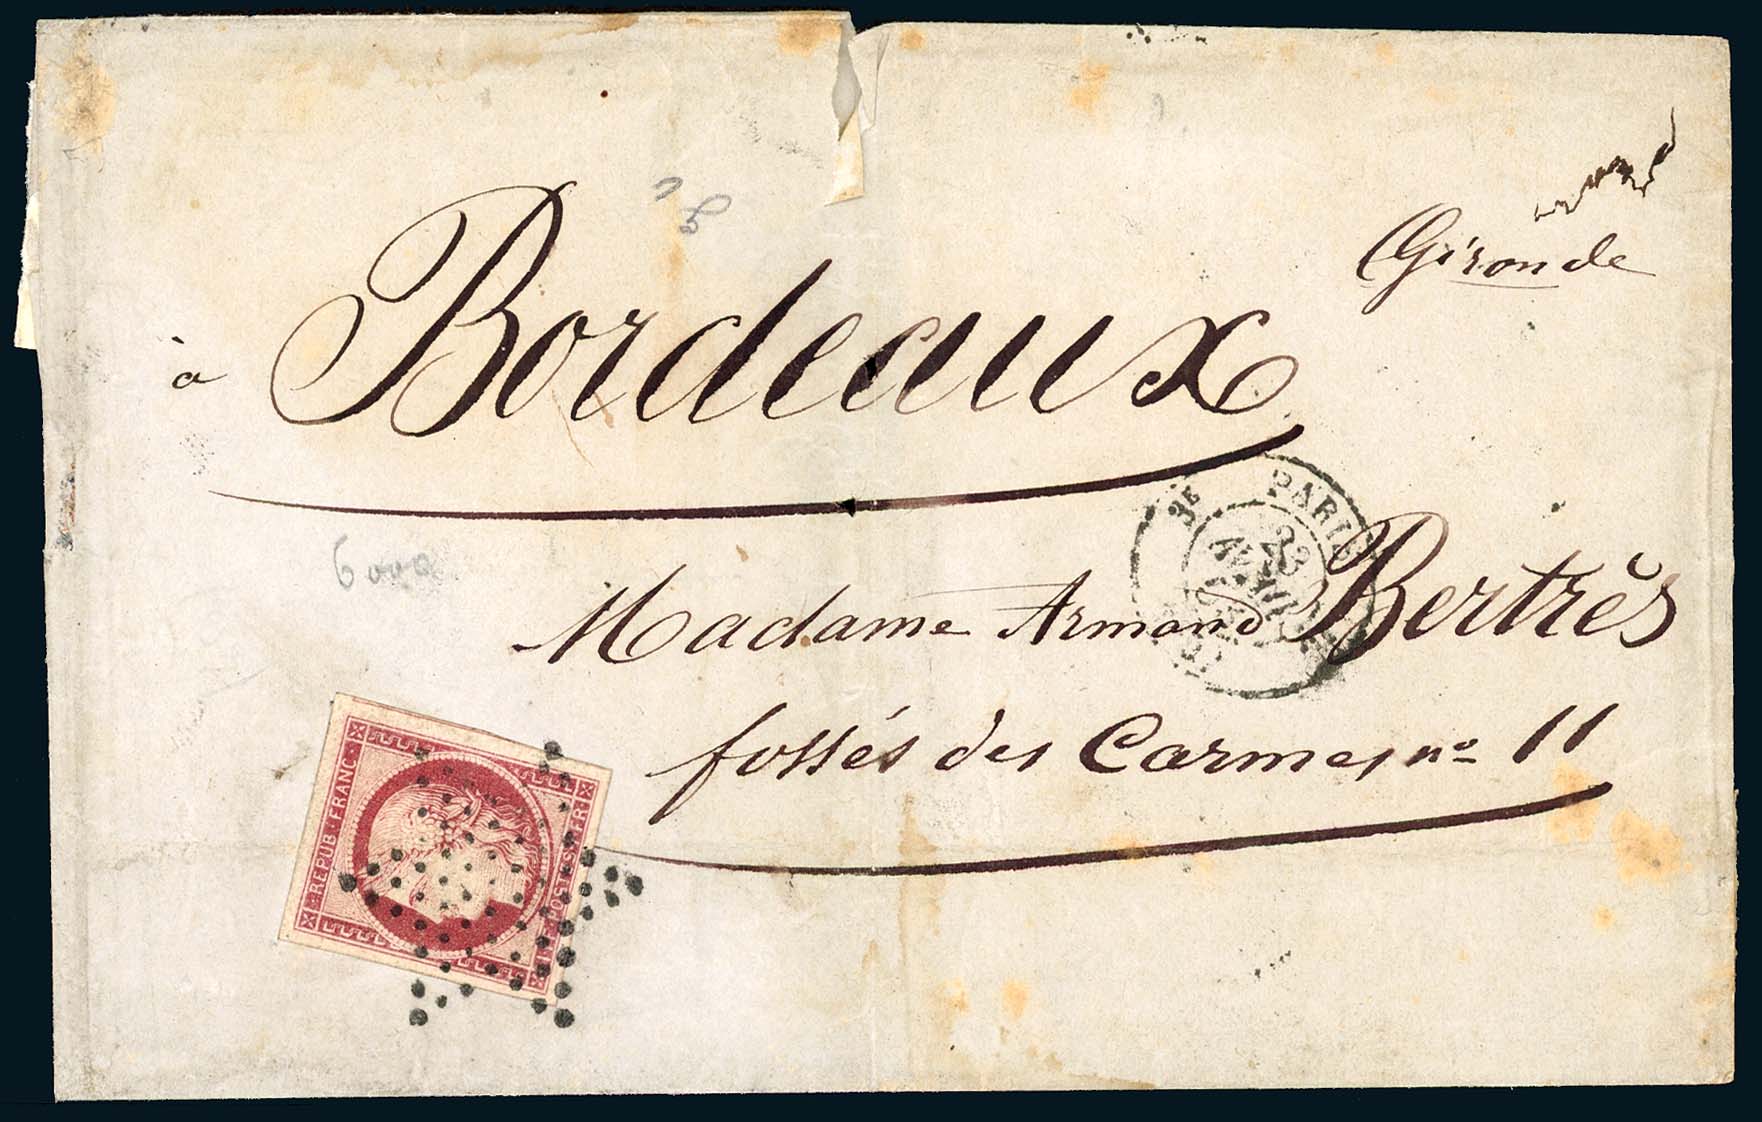 Gironde
à Bordeaux
3E PARIS 3E
23
6000
Madame Armand Bertrès
fossés des Carmes nº 11
REPUB·FRANC·
1F·POSTES·1FR